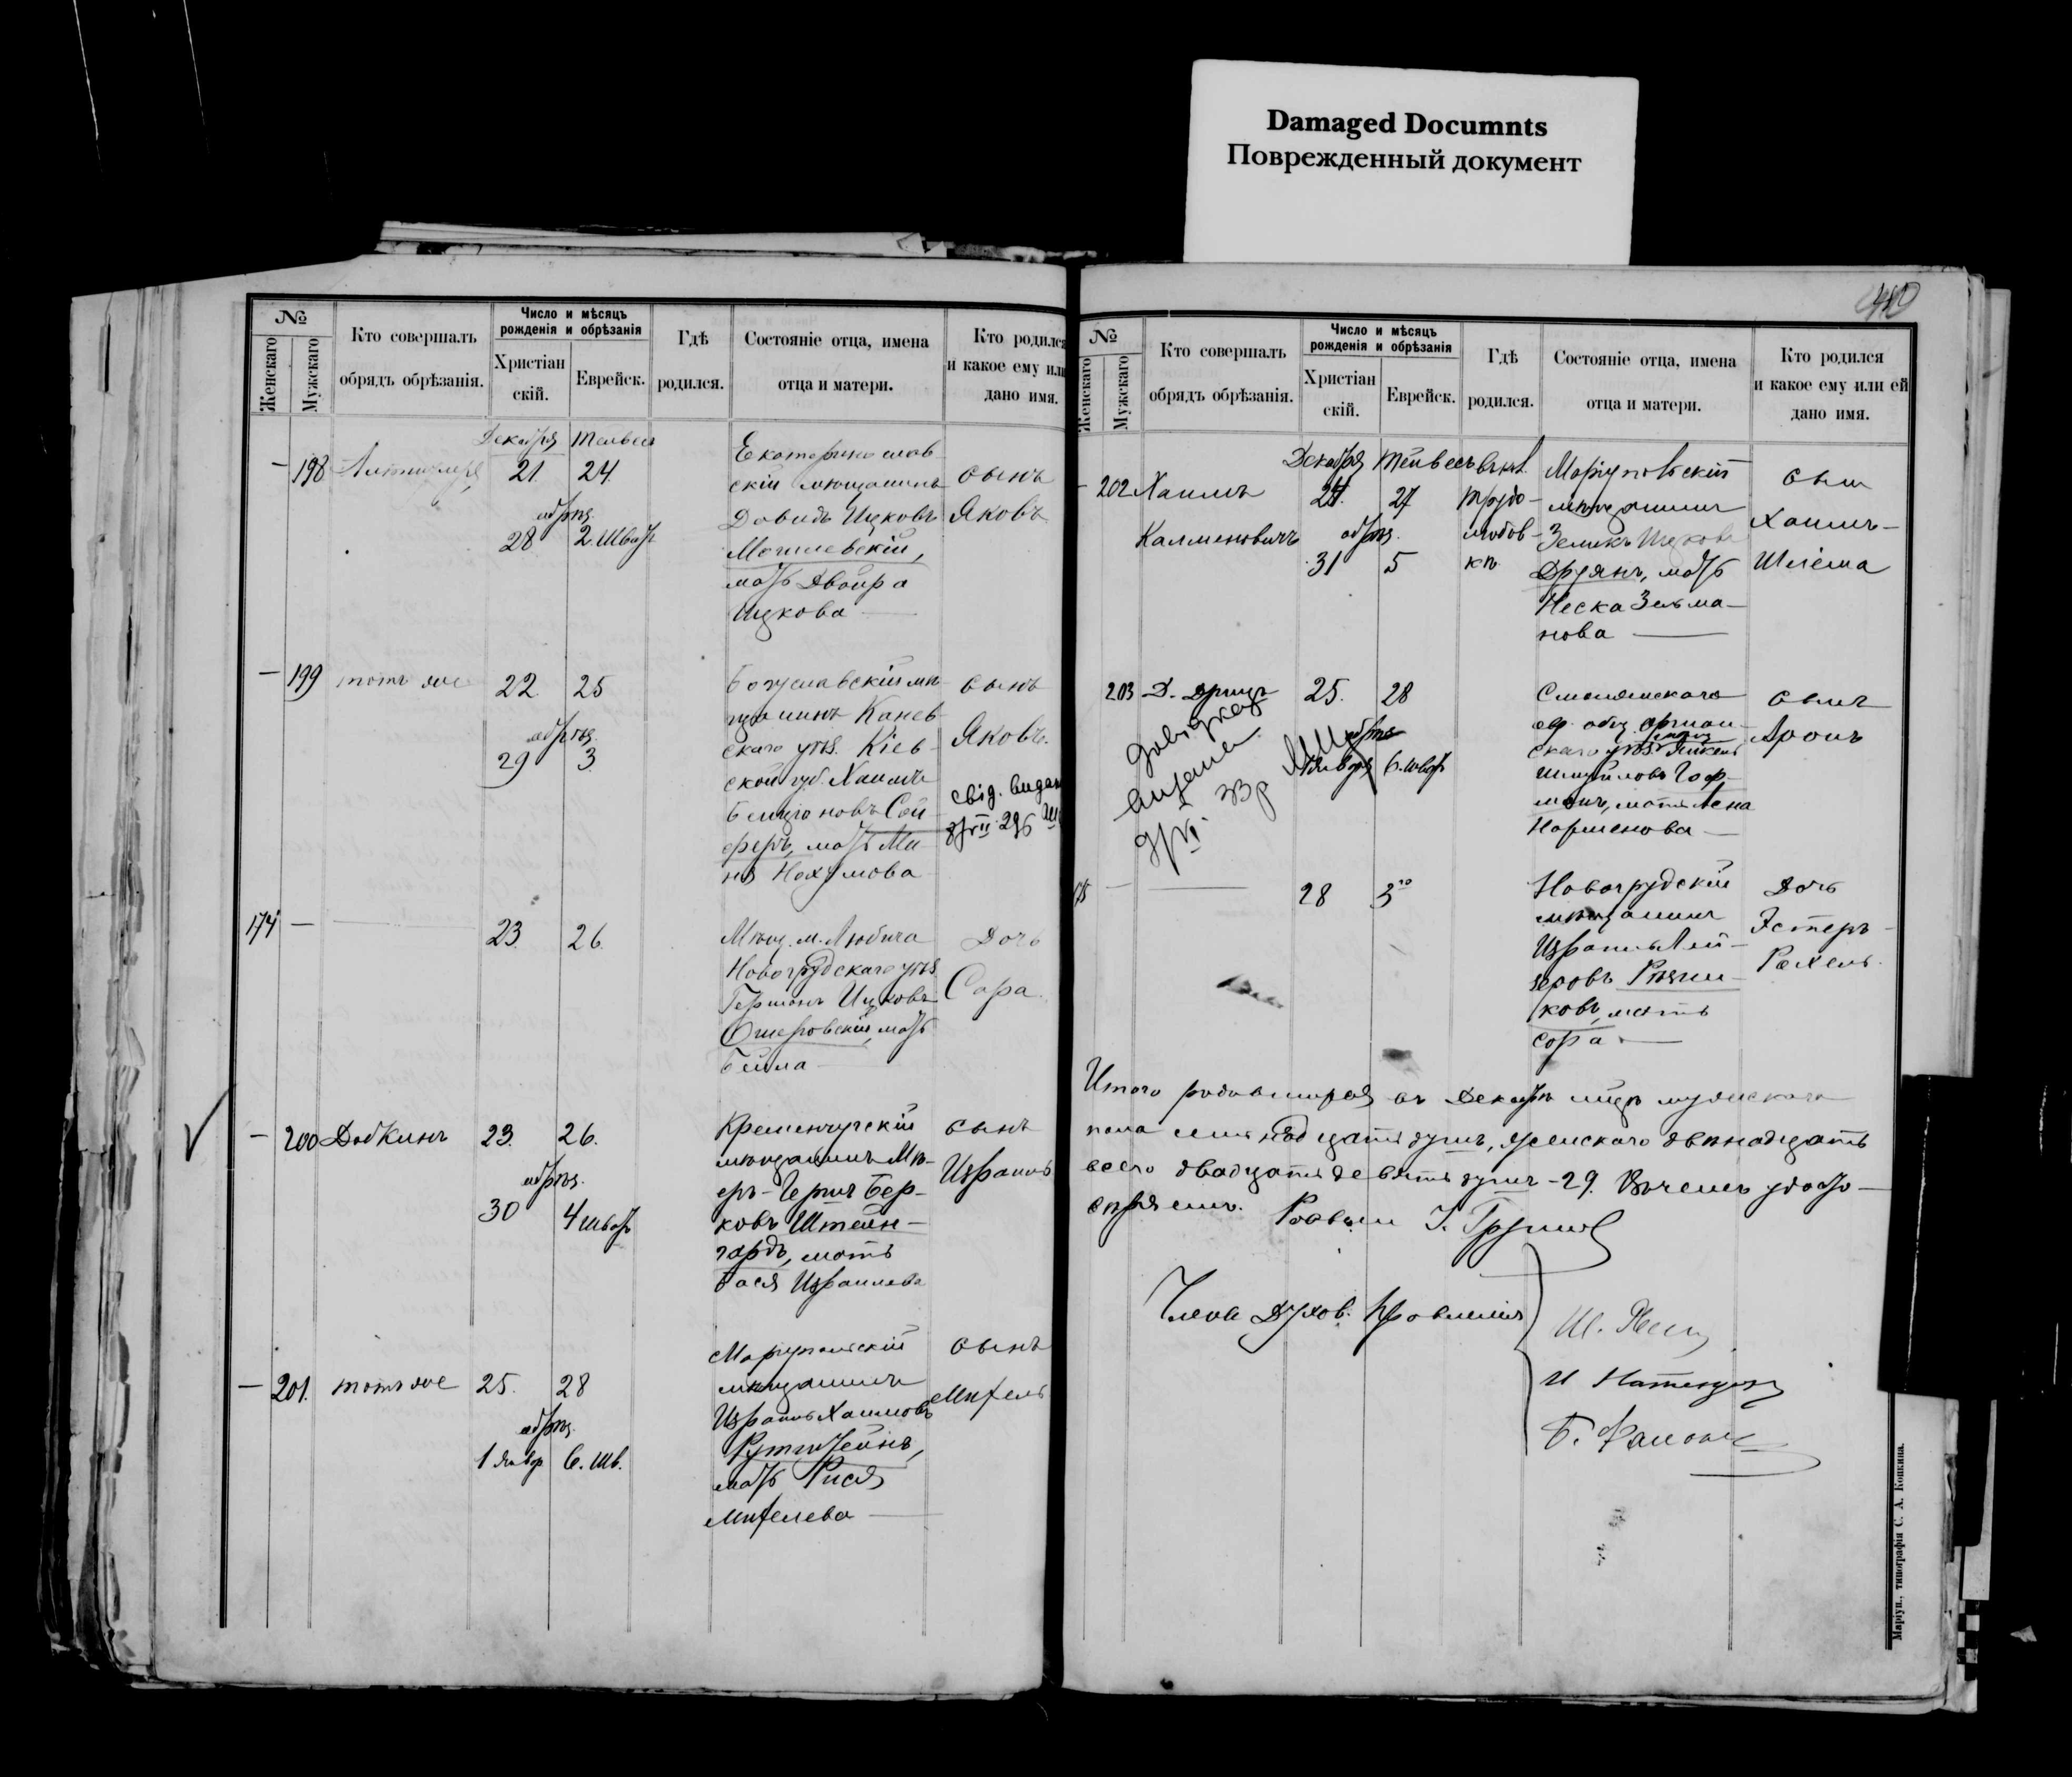 Damaged Documnts
Поврежденный документ
№
Женскаго
Мужскаго
Кто совершалъ
обрядъ обрѣзанія.
Число и мѣсяцъ
рожденія и обрѣзанія
Христіан
скій.
Еврейск.
Гдѣ
родился.
Состояніе отца, имена
отца и матери.
Кто родился
и какое ему или
дано имя.
Декабря
—
198
21.
24.
обрѣз.
28
2. Шват
Екатеринослав
скій мѣщанинъ
Давидъ Ицковъ
Могилевскій,
мать Двойра
Ицкова —
сынъ
Яковъ
—
199
тотъ же
22
25
обрѣз.
29
3
Богуславскій мѣ
щанинъ Канев
скаго уѣз. Кіев-
ской губ. Хаимъ
Бенціоновъ Сой
феръ, мать Ми
ня Нохумова
сынъ
Яковъ.
свід. видан
174
—
23.
26.
Мѣщ. м. Любча
Новогрудскаго уѣз.
Гершонъ Ицковъ
Ошеровскій, мать
Бейла
Дочь
Сара.
—
200
Добкинъ
23.
26.
обрѣз.
30
4 шват
Кременчугскій
мѣщанинъ Мѣ-
еръ-Гершъ Бер-
ковъ Штейн-
гардъ, мать
Бася Израилева
сынъ
Израиль
—
201.
тотъ же
25.
28
обрѣз.
1 янвр
6. шв.
Маріупольскій
мѣщанинъ
Израиль Хаимовъ
Рутштейнъ,
мать Рися
Михелева —
сынъ
Михель
40
№
Женскаго
Мужскаго
Кто совершалъ
обрядъ обрѣзанія.
Число и мѣсяцъ
рожденія и обрѣзанія
Христіан
скій.
Еврейск.
Гдѣ
родился.
Состояніе отца, имена
отца и матери.
Кто родился
и какое ему или ей
дано имя.
Декабря
—
202
Хаимъ
Калменовичъ
24.
27
обрѣз.
31
5
Трудо-
любов-
кѣ
Маріупольскій
мѣщанинъ
Зеликъ Ицковъ
Друянъ, мать
Песка Зельма-
нова —
сынъ
Хаимъ-
Шлёма
203
25.
28
обрѣз
Января
6. шват
Смолянскаго
евр. общ. Оршан-
скаго уѣз. Янкель
Шмуйловъ Гоф-
манъ, мать Асна
сынъ
Аронъ
—
28
Новогрудскій
мѣщанинъ
Израиль Лей-
зеровъ Рѣзни-
ковъ, мать
Сара —
Дочь
Эстеръ-
Рахель.
Итого родившихся въ Декабрѣ мѣсцѣ мужскаго
пола семнадцать душъ, женскаго двѣнадцать
всего двадцать девять душъ - 29. Въ чемъ удосто-
вѣряемъ.
Члены Духов. Правленія
Маріуп., типографія С. А. Копкина.